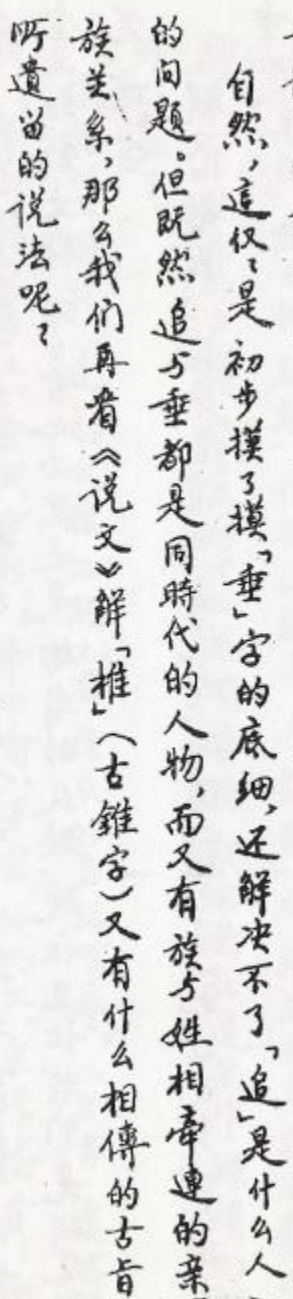 自然，這仅々是初步摸了摸「垂」字的底细，还解决不了「追」是什么人
的问题。但既然追与垂都是同時代的人物，而又有族与姓相牵連的亲
族关系，那么我们再看《说文》解「椎」（古錐字）又有什么相傳的古旨
所遺留的说法呢？